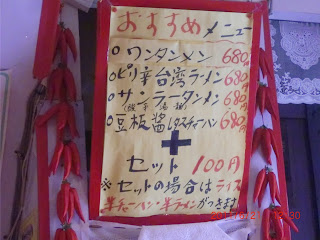 おすすめメニュー
○ワンタンメン 680円
○ピリ辛台湾ラーメン 680円
○サンラータンメン 680円
○豆板醤レタスチャーハン 680円
+
セット 100円
※セットの場合はライス
半チャーハン・半ラーメンがつきます